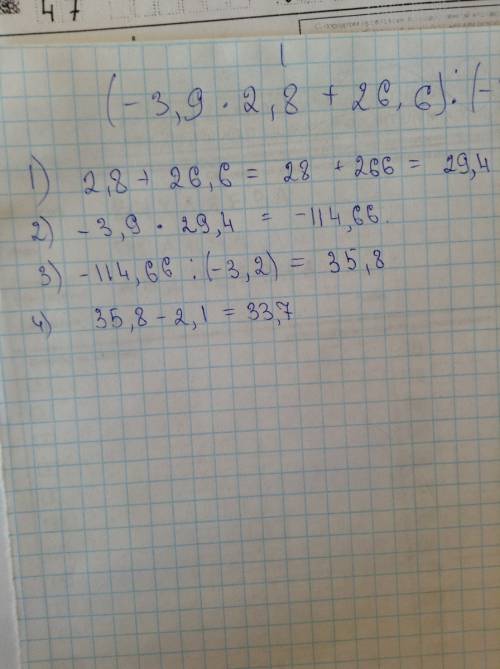 47
(-3,9 · 2,8 + 26,6) : (-
1) 2,8 + 26,6 = 28 + 266 = 29,4
2) -3,9 · 29,4 = -114,66.
3) -114,66 : (-3,2) = 35,8
4) 35,8 - 2,1 = 33,7